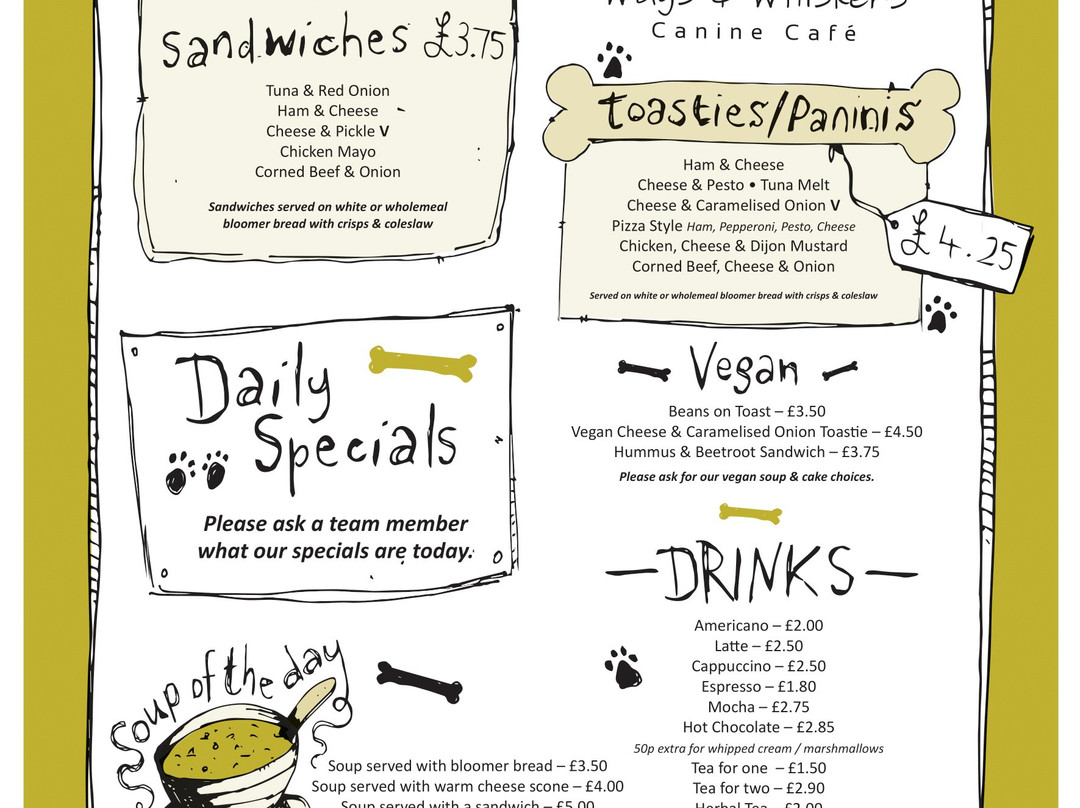 Sandwiches £3.75
Tuna & Red Onion
Ham & Cheese
Cheese & Pickle V
Chicken Mayo
Corned Beef & Onion
Sandwiches served on white or wholemeal
bloomer bread with crisps & coleslaw
Daily
Specials
Please ask a team member
what our specials are today.
Soup of the day
Soup served with bloomer bread – £3.50
Soup served with warm cheese scone – £4.00
Soup served with a sandwich – £5.00
& Whiskers
Canine Café
toasties/Paninis
£4.25
Ham & Cheese
Cheese & Pesto • Tuna Melt
Cheese & Caramelised Onion V
Pizza Style Ham, Pepperoni, Pesto, Cheese
Chicken, Cheese & Dijon Mustard
Corned Beef, Cheese & Onion
Served on white or wholemeal bloomer bread with crisps & coleslaw
Vegan
Beans on Toast – £3.50
Vegan Cheese & Caramelised Onion Toastie – £4.50
Hummus & Beetroot Sandwich – £3.75
Please ask for our vegan soup & cake choices.
DRINKS
Americano – £2.00
Latte – £2.50
Cappuccino – £2.50
Espresso – £1.80
Mocha – £2.75
Hot Chocolate – £2.85
50p extra for whipped cream / marshmallows
Tea for one – £1.50
Tea for two – £2.90
Herbal Tea – £2.00